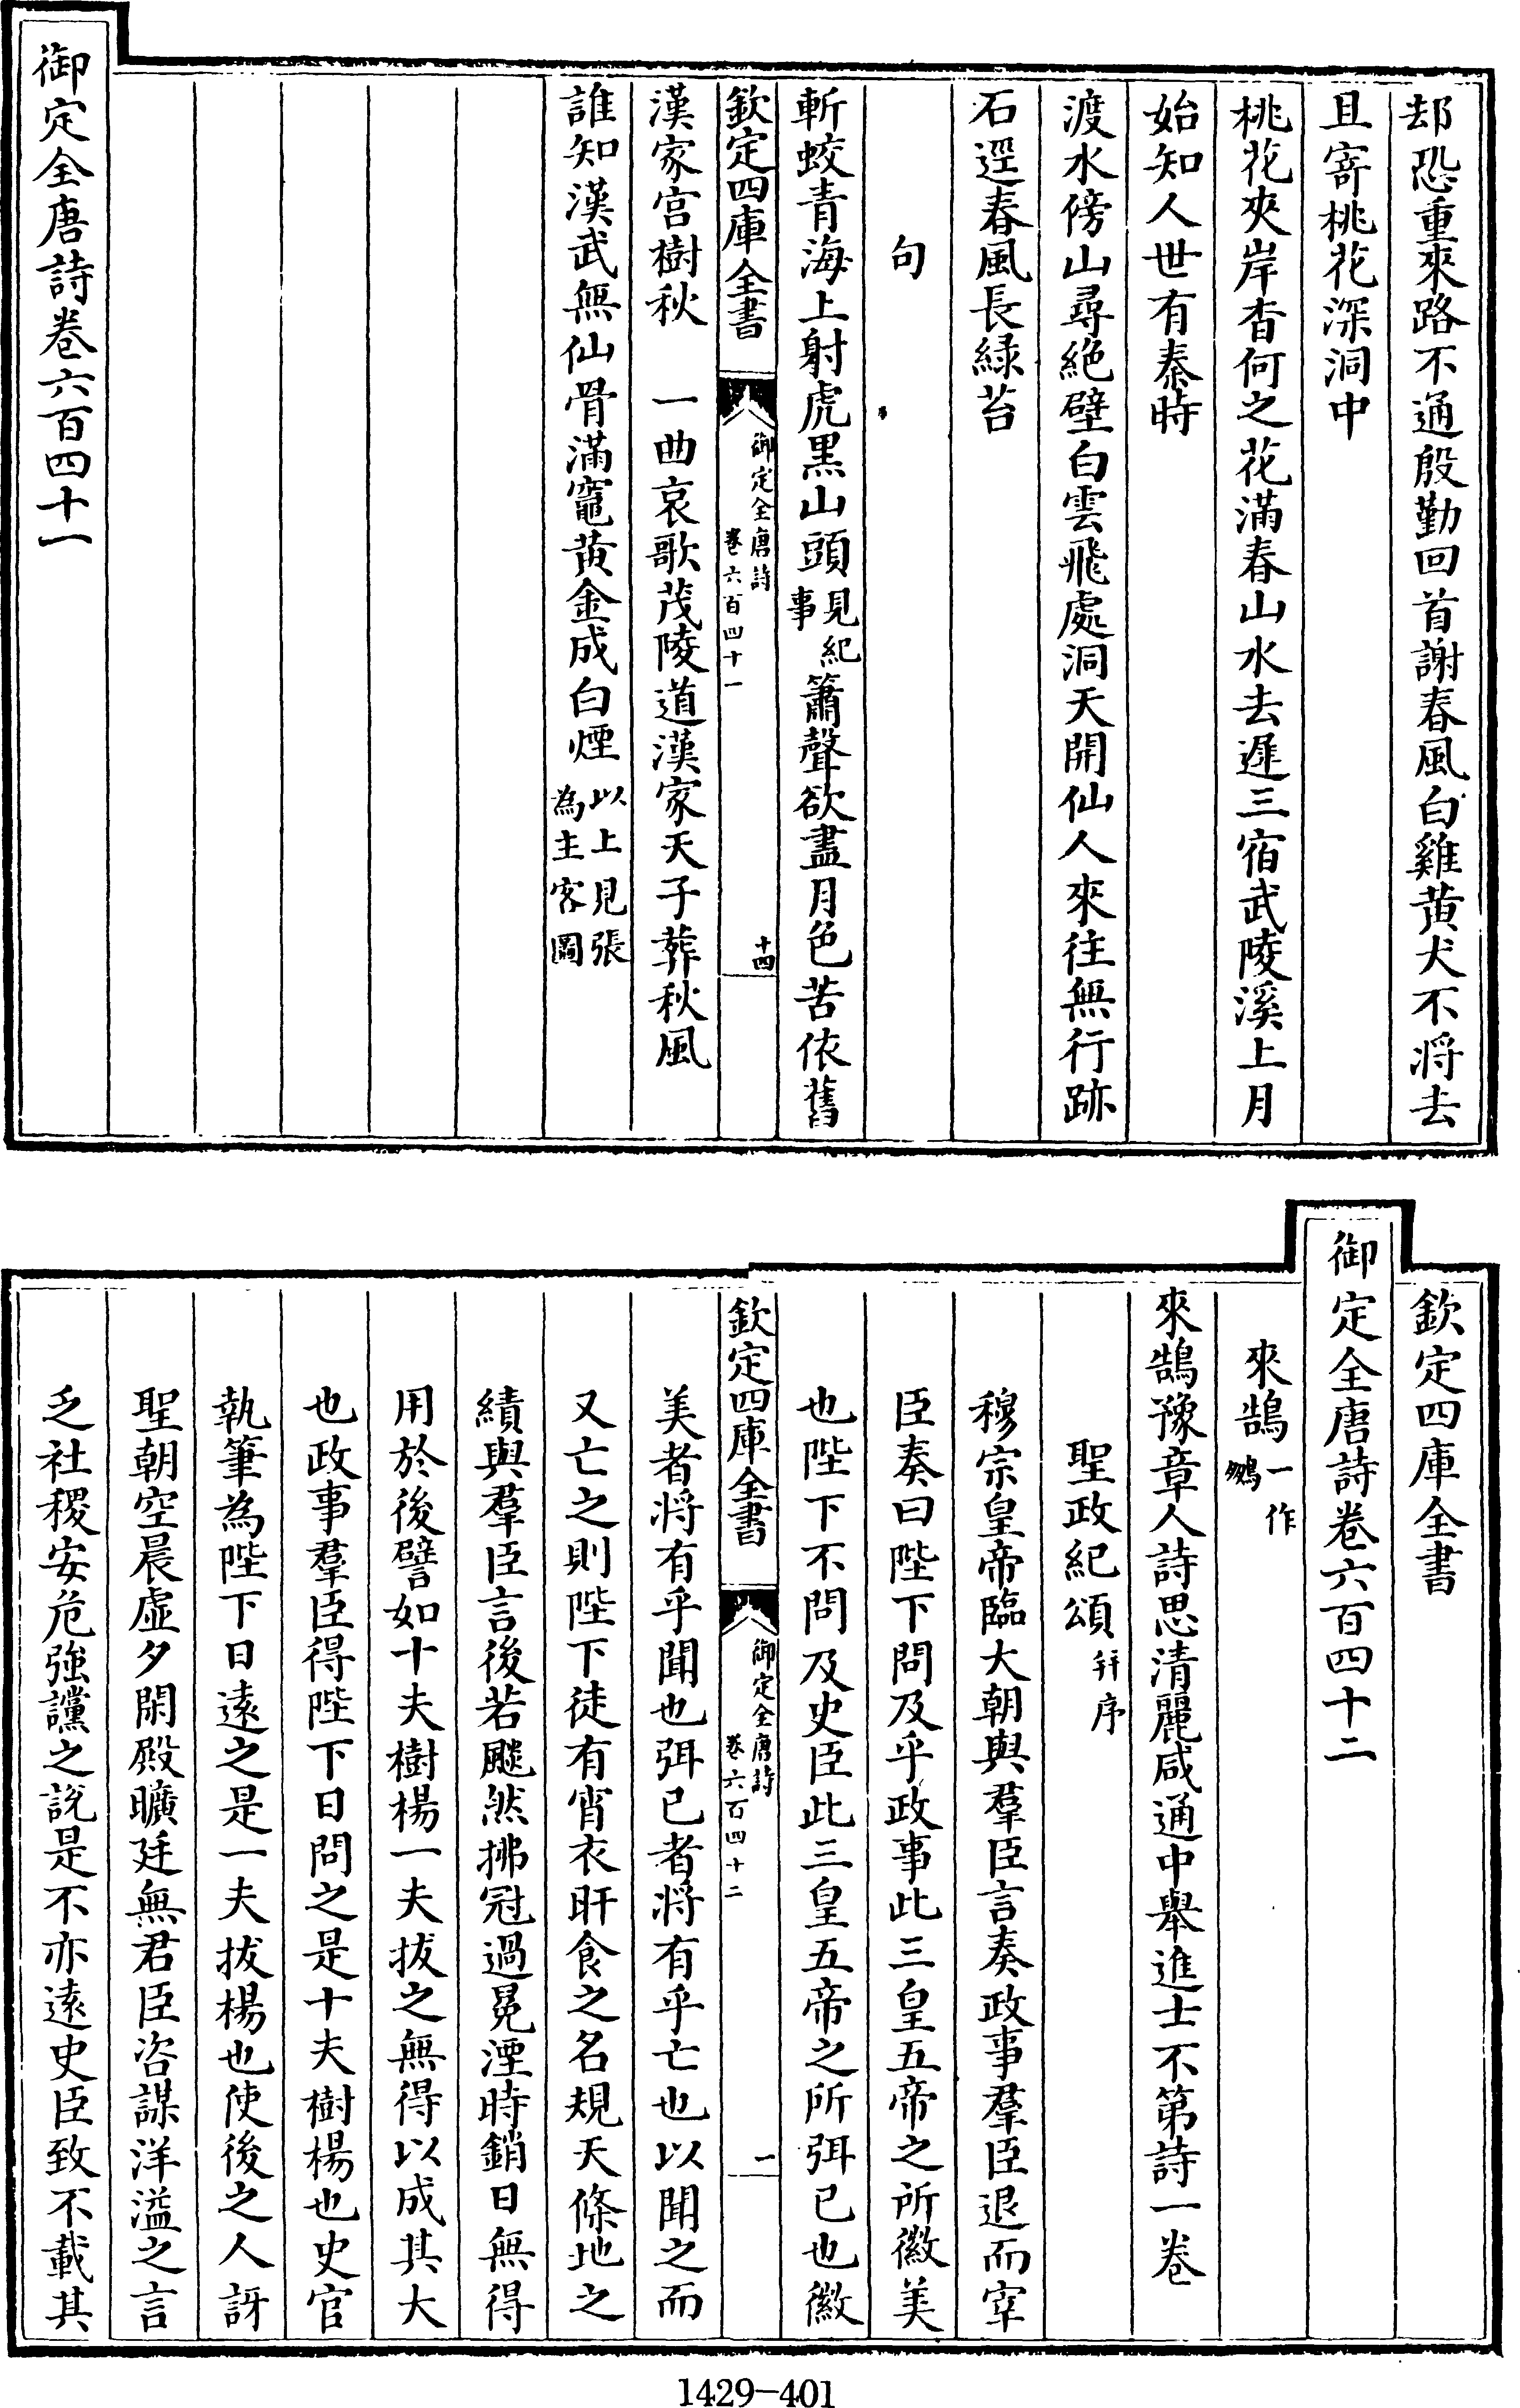 却恐重來路不通殷勤回首謝春風白雞黄犬不將去
且寄桃花深洞中
桃花夾岸杳何之花滿春山水去遲三宿武陵溪上月
始知人世有秦時
渡水傍山尋絶壁白雲飛處洞天開仙人來往無行跡
石逕春風長緑苔
句
斬蛟青海上射虎黒山頭見紀事簫聲欲盡月色苦依舊
欽定四庫全書
御定全唐詩
卷六百四十一
十四
漢家宫樹秋　一曲哀歌茂陵道漢家天子葬秋風
誰知漢武無仙骨滿竈黄金成白煙以上見張為主客圖
御定全唐詩卷六百四十一
欽定四庫全書
御定全唐詩卷六百四十二
來鵠一作鵬
來鵠豫章人詩思清麗咸通中舉進士不第詩一卷
聖政紀頌并序
穆宗皇帝臨大朝與羣臣言奏政事羣臣退而宰
臣奏曰陛下問及乎政事此三皇五帝之所徽美
也陛下不問及史臣此三皇五帝之所弭已也徽
欽定四庫全書
御定全唐詩
卷六百四十二
一
美者將有乎聞也弭已者將有乎亡也以聞之而
又亡之則陛下徒有宵衣旰食之名規天條地之
績與羣臣言後若飈然拂冠過冕湮時銷日無得
用於後譬如十夫樹楊一夫拔之無得以成其大
也政事羣臣得陛下日問之是十夫樹楊也史官
執筆為陛下日逺之是一夫拔楊也使後之人訝
聖朝空晨虚夕閑殿曠廷無君臣咨謀洋溢之言
乏社稷安危強讜之說是不亦逺史臣致不載其
1429-401